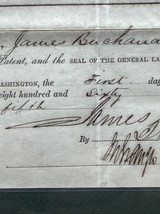 James Buchana
Patent, and the SEAL OF THE GENERAL LA
WASHINGTON, the First day
eight hundred and Sixty
fifth
James B
By